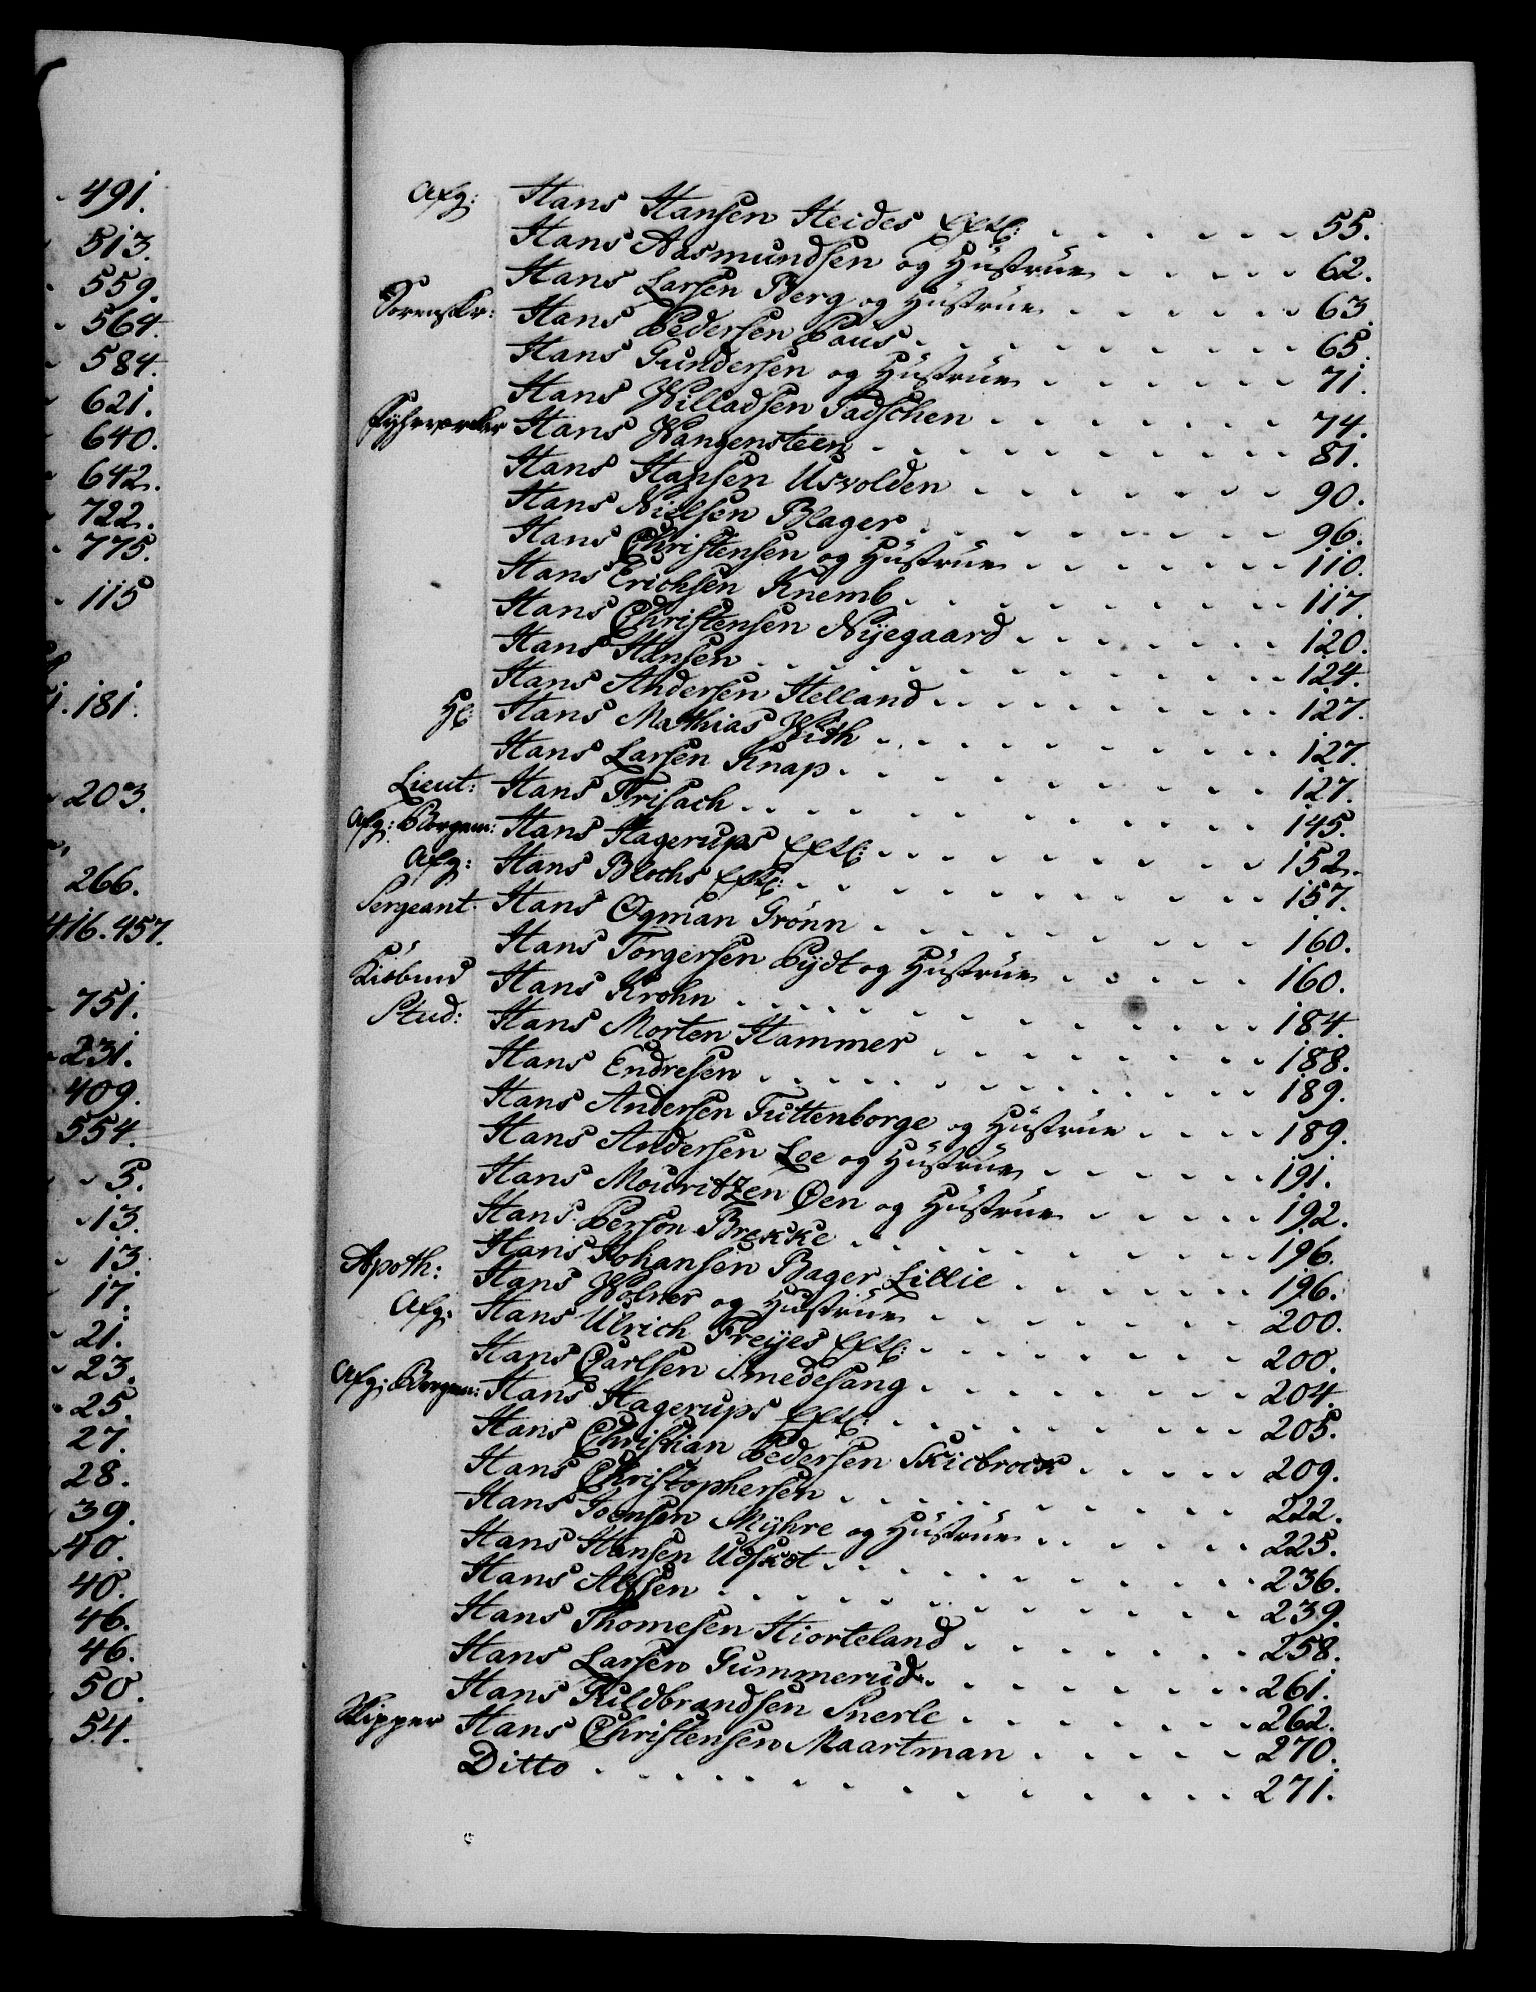 491.
513.
559.
564.
584.
621.
640.
642.
722.
775.
115
181.
203.
266.
416. 457.
751.
231.
409.
554.
5.
13.
13.
17.
21.
23.
25.
27.
28.
39.
40.
40.
46.
46.
50.
54.
Afg: Hans Hansen Heides Efterl: 55.
Hans Aasmundsen og Hustrue 62.
Hans Larsen Berg og Hustrue 63.
Sorenskr: Hans Pedersen Paus 65.
Hans Gundersen og Hustrue 71.
Hans Willadsen Tadschen 74.
Hans Wangensteen 81.
Hans Hansen Usvolden 90.
Hans Nielsen Blager 96.
Hans Christensen og Hustrue 110.
Hans Erichsen Knemb 117.
Hans Christensen Nÿegaard 120.
Hans Hansen 124.
Hans Andersen Helland 127.
Hr Hans Mathias With 127.
Hans Larsen Knap 127.
Lieut: Hans Frisach 145.
Afg: Borgem: Hans Hagerups Efterl: 152.
Afg: Hans Blochs Efterl: 157.
Sergeant Hans Ogman Grönn 160.
Hans Torgersen Bÿdt og Hustrue 160.
Hans Krohn 184.
Stud: Hans Morten Hammer 188.
Hans Endresen 189.
Hans Andersen Tuttenborge og Hustrue 189.
Hans Andersen Loe og Hustrue 191.
Hans Mouritzen Øen og Hustrue 192.
Hans Person Brekke 196.
Hans Johansen Bager Lillie 196.
Apoth: Hans Wolner og Hustrue 200.
Afg: Hans Ulrich Freÿes Efterl: 200.
Hans Carlsen Smedesang 204.
Afg: Borgem: Hans Hagerups Efterl: 205.
Hans Christian Pedersen Skicbrock 209.
Hans Christophersen 222.
Hans Joensen Mÿhre og Hustrue 225.
Hans Hansen Udskot 236.
Hans Alfsen 239.
Hans Thomesen Hiorteland 258.
Hans Larsen Gummerud 261.
Hans Hildbrandsen Snerle 262.
Skipper Hans Christensen Maartman 270.
Ditto 271.